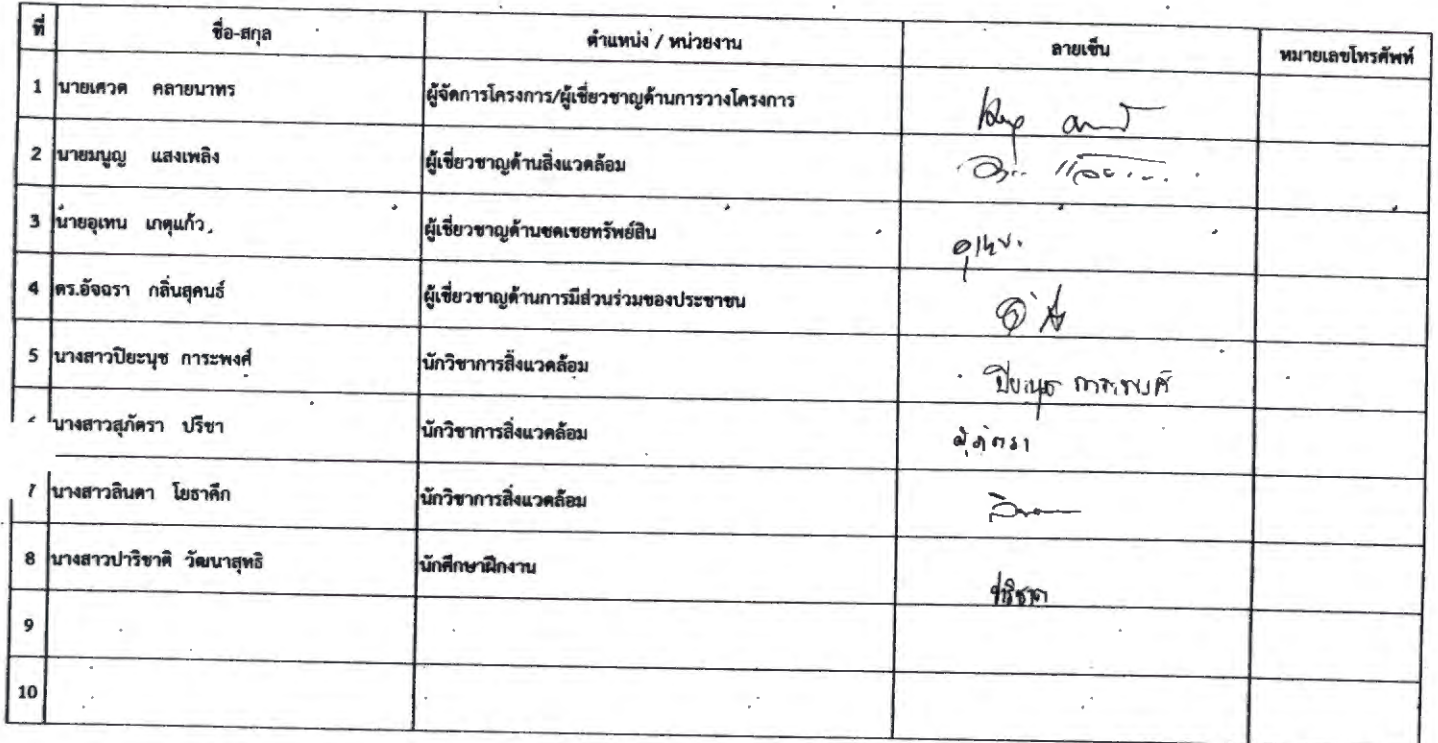 ที่ ชื่อ-สกุล ตำแหน่ง / หน่วยงาน ลายเซ็น หมายเลขโทรศัพท์
1 นายเศวต คลายนาทร ผู้จัดการโครงการ/ผู้เชี่ยวชาญด้านการวางโครงการ
2 นายมนูญ แสงเพลิง ผู้เชี่ยวชาญด้านสิ่งแวดล้อม
3 นายอุเทน เกตุแก้ว ผู้เชี่ยวชาญด้านชดเชยทรัพย์สิน
4 ดร.อัจฉรา กลิ่นสุคนธ์ ผู้เชี่ยวชาญด้านการมีส่วนร่วมของประชาชน
5 นางสาวปิยะนุช การะพงศ์ นักวิชาการสิ่งแวดล้อม ปิยะนุช การะพงศ์
นางสาวสุภัตรา ปรีชา นักวิชาการสิ่งแวดล้อม สุภัตรา
7 นางสาวลินดา โยธาคึก นักวิชาการสิ่งแวดล้อม
8 นางสาวปาริชาติ วัฒนาสุทธิ นักศึกษาฝึกงาน
9
10